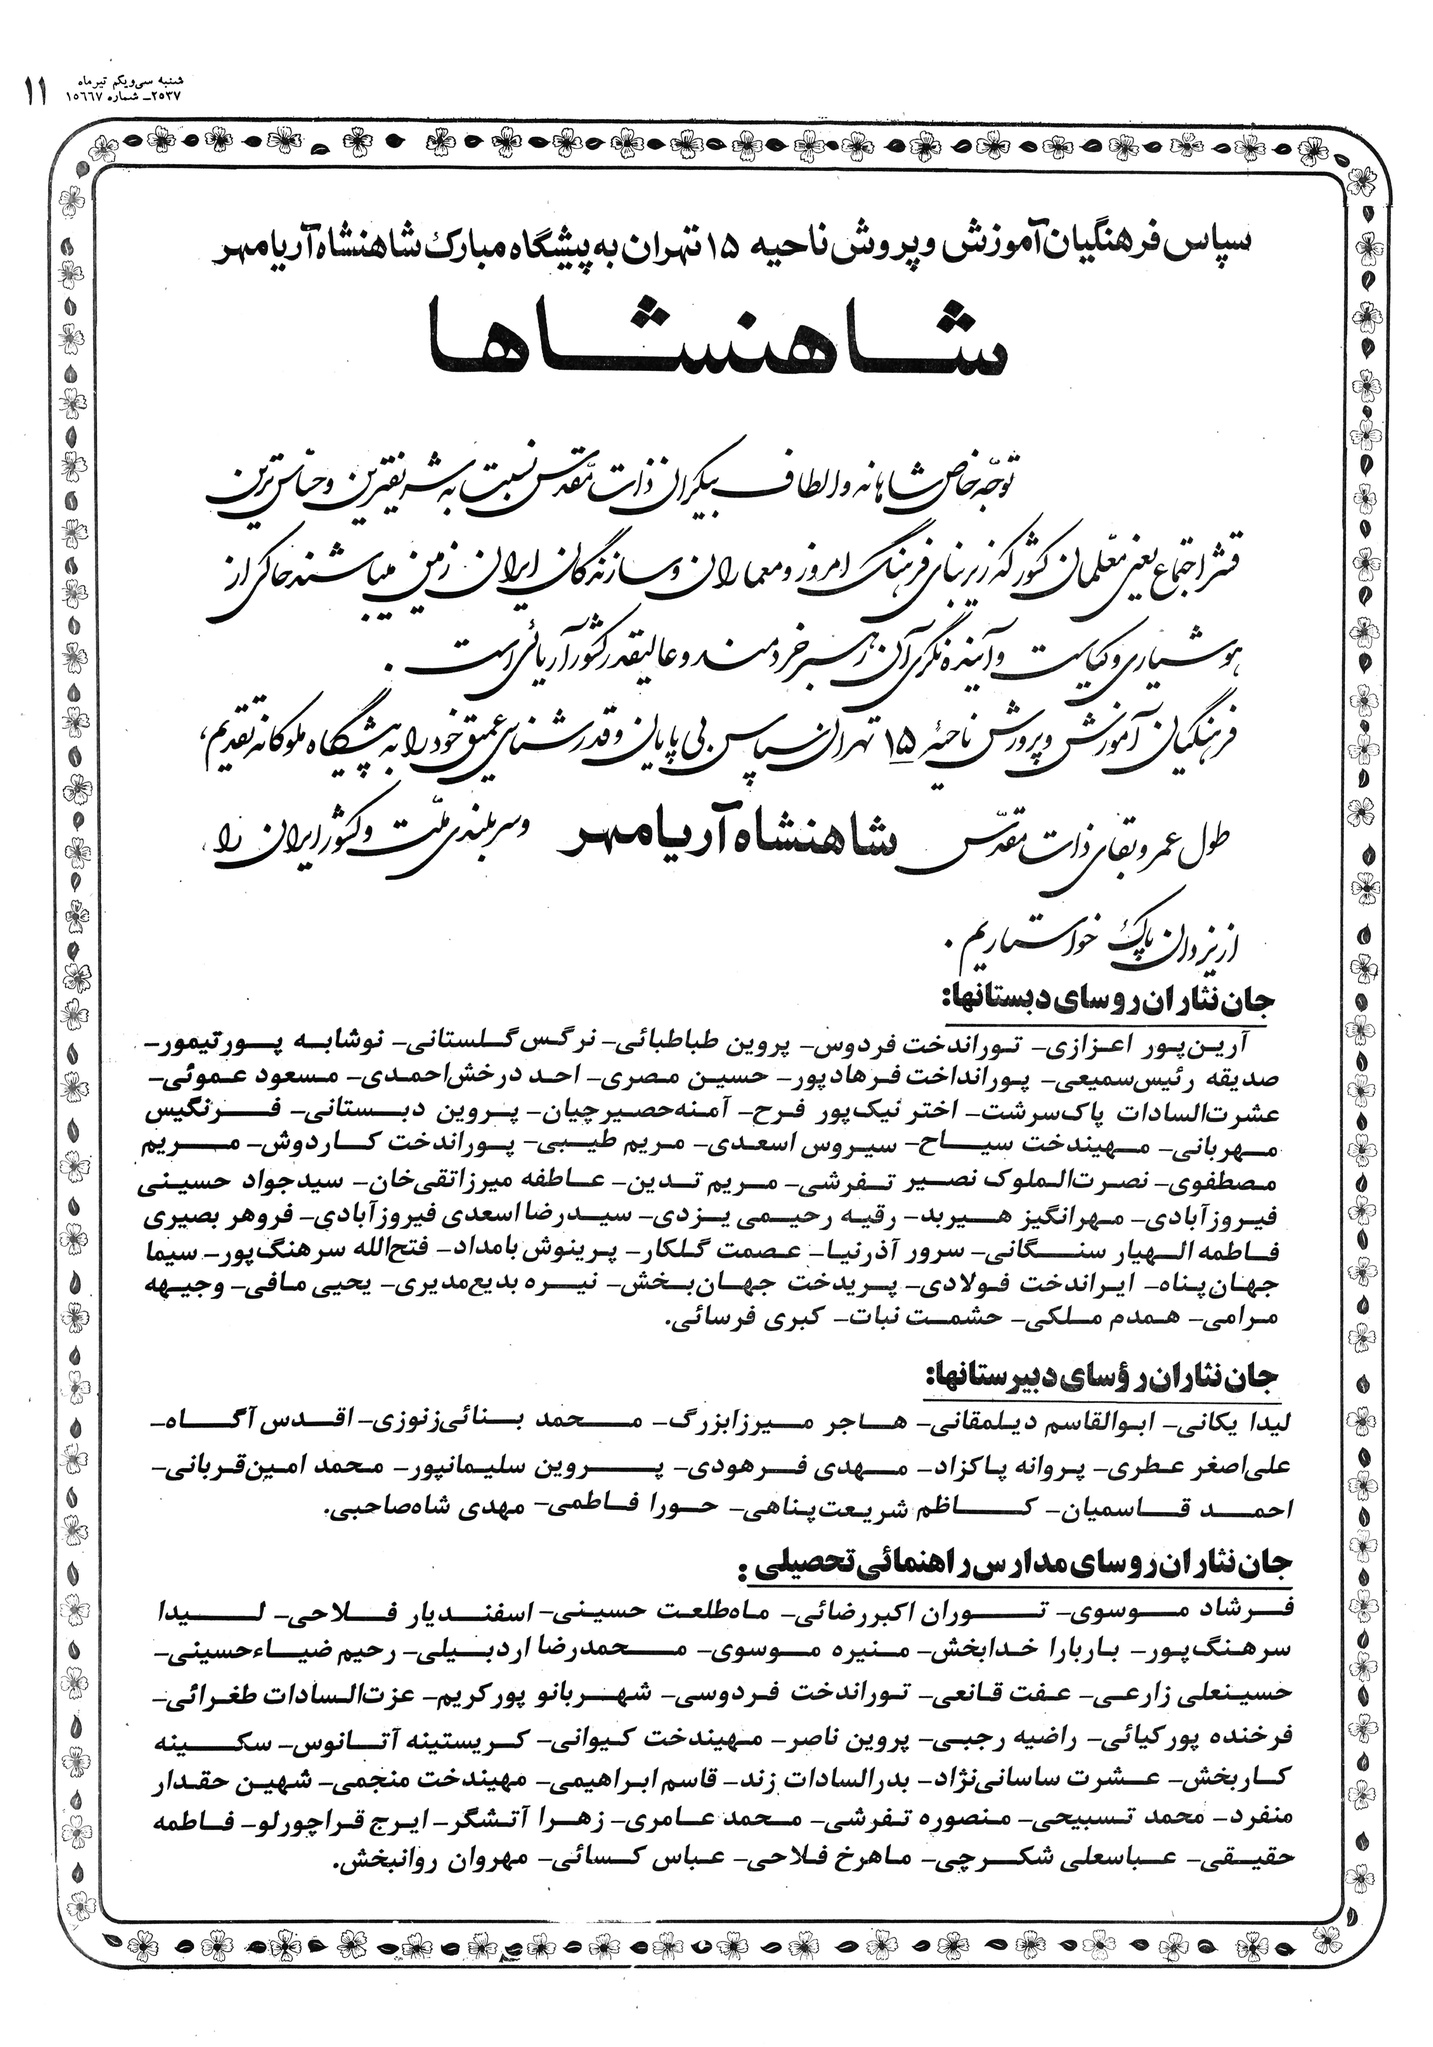 شنبه سی‌ویکم تیرماه
۲۵۳۷ـ شماره ۱۵۶۶۷
۱۱
سپاس فرهنگیان آموزش و پروش ناحیه ۱۵ تهران به پیشگاه مبارک شاهنشاه آریامهر
شاهنشاها
توجّه خاص شاهانه و الطاف بیکران ذات مقدّس نسبت به شریفترین و حسّاس‌ترین
قشر اجتماع یعنی معلّمان کشور که زیربنای فرهنگ امروز و معماران و سازندگان ایران زمین میباشند حاکی از
هوشیاری و کیاست و آینده‌نگری آن رهبر خردمند و عالیقدر کشور آریائی است .
فرهنگیان آموزش و پرورش ناحیهٔ ۱۵ تهران سپاس بی پایان و قدرشناسی عمیق خود را به پیشگاه ملوکانه تقدیم،
طول عمر و بقای ذات مقدّس شاهنشاه آریامهر و سربلندی ملّت و کشور ایران را،
از یزدان پاک خواستاریم .
جان نثاران روسای دبستانها:
آرین‌پور اعزازی- توراندخت فردوس- پروین طباطبائی- نرگس گلستانی- نوشابه پورتیمور-
صدیقه رئیس‌سمیعی- پورانداخت فرهادپور- حسین مصری- احد درخش‌احمدی- مسعود عموئی-
عشرت‌السادات پاک‌سرشت- اختر نیک‌پور فرح- آمنه‌حصیرچیان- پروین دبستانی- فرنگیس
مهربانی- مهیندخت سیاح- سیروس اسعدی- مریم طیبی- پوراندخت کاردوش- مریم
مصطفوی- نصرت‌الملوک نصیر تفرشی- مریم تدین- عاطفه میرزاتقی‌خان- سیدجواد حسینی
فیروزآبادی- مهرانگیز هیربد- رقیه رحیمی یزدی- سیدرضا اسعدی فیروزآبادی- فروهر بصیری
فاطمه الهیار سنگانی- سرور آذرنیا- عصمت گلکار- پرینوش بامداد- فتح‌الله سرهنگ‌پور- سیما
جهان‌پناه- ایراندخت فولادی- پریدخت جهان‌بخش- نیره بدیع‌مدیری- یحیی مافی- وجیهه
مرامی- همدم ملکی- حشمت نبات- کبری فرسائی.
جان نثاران رؤسای دبیرستانها:
لیدا یکانی- ابوالقاسم دیلمقانی- هاجر میرزابزرگ- محمد بنائی‌زنوزی- اقدس آگاه-
علی‌اصغر عطری- پروانه پاکزاد- مهدی فرهودی- پروین سلیمانپور- محمد امین‌قربانی-
احمد قاسمیان- کاظم شریعت‌پناهی- حورا فاطمی- مهدی شاه‌صاحبی.
جان نثاران روسای مدارس راهنمائی تحصیلی :
فرشاد موسوی- توران اکبررضائی- ماه‌طلعت حسینی- اسفندیار فلاحی- لیدا
سرهنگ‌پور- باربارا خدابخش- منیره موسوی- محمدرضا اردبیلی- رحیم ضیاءحسینی-
حسینعلی زارعی- عفت قانعی- توراندخت فردوسی- شهربانو پورکریم- عزت‌السادات طغرائی-
فرخنده پورکیائی- راضیه رجبی- پروین ناصر- مهیندخت کیوانی- کریستینه آتانوس- سکینه
کاربخش- عشرت ساسانی‌نژاد- بدرالسادات زند- قاسم ابراهیمی- مهیندخت منجمی- شهین حقدار
منفرد- محمد تسبیحی- منصوره تفرشی- محمد عامری- زهرا آتشگر- ایرج قراچورلو- فاطمه
حقیقی- عباسعلی شکرچی- ماهرخ فلاحی- عباس کسائی- مهروان روانبخش.